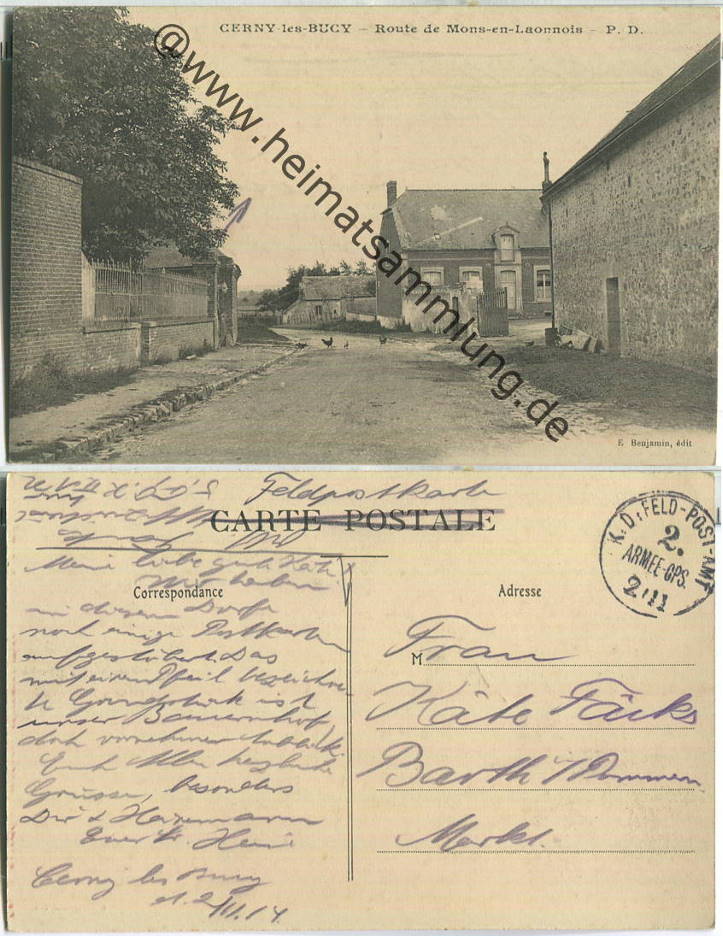 CERNY-les-BUCY – Route de Mons-en-Laonnois – P. D.
@www.heimatsammlung.de
E. Benjamin, édit
Feldpostkarte
CARTE POSTALE
K.D. FELD-POST-AMT
2.
ARMEE-CPS.
2/11
Correspondance
Adresse
Meine liebe gute Käte
Wir haben
in diesem Dorfe
noch einige Postkarten
aufgestöbert. Das
mit einem Pfeil bezeichne-
te Grundstück ist
unser Bauernhof,
doch vornehmer
Euch Allen herzliche
Grüsse, besonders
Dir &
Euer tr.
Cerny les Bucy
d. 2/11.14
M Frau
Käte
Barth i/Pommern
Markt.